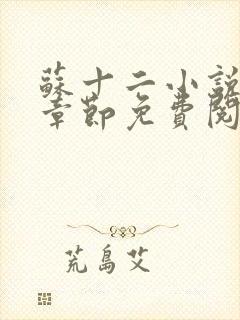 蘇十二小說
章節免費閱
荒島艾